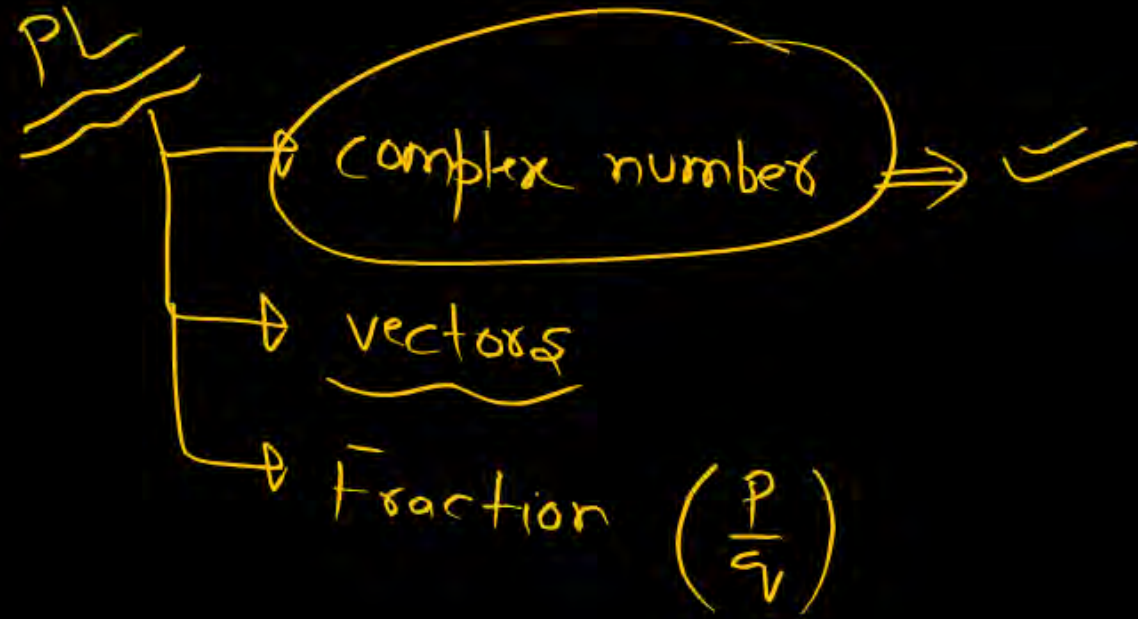 PL
complex number
vectors
Fraction (p/q)